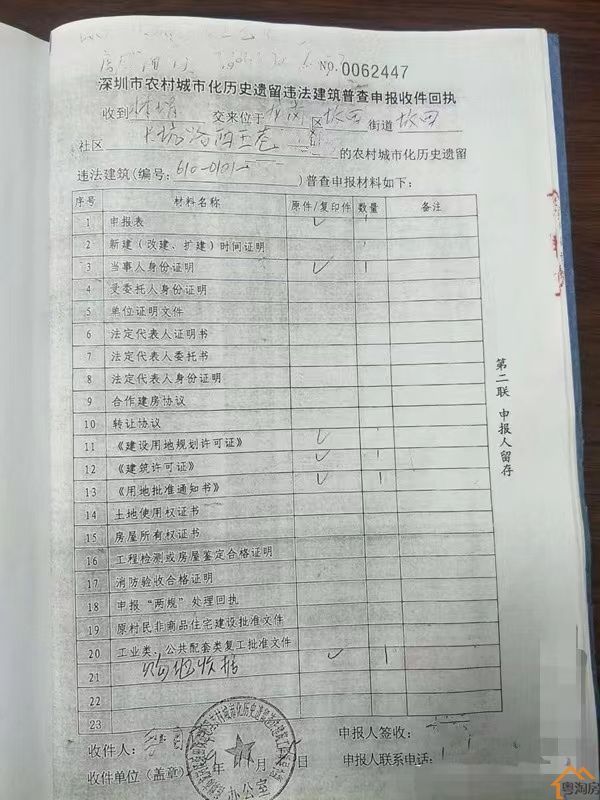 NO.0062447
深圳市农村城市化历史遗留违法建筑普查申报收件回执
收到 交来位于 区 坂田 街道 坂田
社区 的农村城市化历史遗留
违法建筑(编号: 610-0101 )普查申报材料如下:
序号 材料名称 原件/复印件 数量 备注
1 申报表 ✓ 1
2 新建(改建、扩建)时间证明
3 当事人身份证明 ✓ 1
4 受委托人身份证明
5 单位证明文件
6 法定代表人证明书
7 法定代表人委托书
8 法定代表人身份证明
9 合作建房协议
10 转让协议
11 《建设用地规划许可证》 ✓
12 《建筑许可证》 ✓ 1
13 《用地批准通知书》 ✓ 1
14 土地使用权证书
15 房屋所有权证书
16 工程检测或房屋鉴定合格证明
17 消防验收合格证明
18 申报“两规”处理回执
19 原村民非商品住宅建设批准文件
20 工业类、公共配套类复工批准文件
21 收据 ✓ 1
22
23
收件人: 申报人签收:
收件单位(盖章) 年 月 日 申报人联系电话:
办公室
第二联 申报人留存
粤淘房